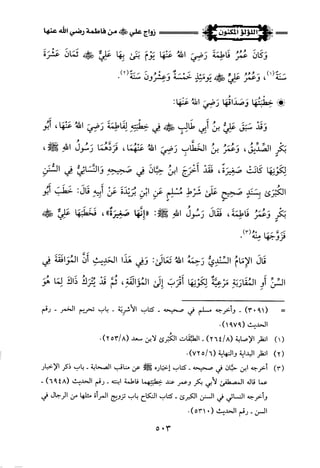 اللؤلؤ المكنون
زواج علي ﷺ من فاطمة رضي الله عنها
وَكَانَ عُمُرُ فَاطِمَةَ رَضِيَ اللهُ عَنْهَا يَوْمَ بَنَى بِهَا عَلِيٌّ ﷺ ثَمَانَ عَشْرَةَ
سَنَةً(١)، وَعُمُرُ عَلِيٍّ ﷺ يَوْمَئِذٍ خَمْسَةٌ وَعِشْرُونَ سَنَةً(٢).
خِطْبَتُهَا وَصَدَاقُهَا رَضِيَ اللهُ عَنْهَا:
وَقَدْ سَبَقَ عَلِيَّ بنَ أَبِي طَالِبٍ ﷺ فِي خِطْبَتِهِ لِفَاطِمَةَ رَضِيَ اللهُ عَنْهَا، أَبُو
بَكْرٍ الصِّدِّيقُ، وَعُمَرُ بنُ الخَطَّابِ رَضِيَ اللهُ عَنْهُمَا، فَرَدَّهُمَا رَسُولُ اللهِ ﷺ،
لِكَوْنِهَا كَانَتْ صَغِيرَةً، فَقَدْ أَخْرَجَ ابنُ حِبَّانَ فِي صَحِيحِهِ وَالنَّسَائِيُّ فِي السُّنَنِ
الكُبْرَى بِسَنَدٍ صَحِيحٍ عَلَى شَرْطِ مُسْلِمٍ عَنِ ابْنِ بُرَيْدَةَ عَنْ أَبِيهِ قَالَ: خَطَبَ أَبُو
بَكْرٍ وَعُمَرُ فَاطِمَةَ، فَقَالَ رَسُولُ اللهِ ﷺ: «إِنَّهَا صَغِيرَةٌ»، فَخَطَبَهَا عَلِيٌّ ﷺ
فَزَوَّجَهَا مِنْهُ(٣).
قَالَ الإِمَامُ السِّنْدِيُّ رَحِمَهُ اللهُ تَعَالَى: وَفِي هَذَا الحَدِيثِ أَنَّ المُوَافَقَةَ فِي
السِّنِّ أَوِ المُقَارَبَةَ مَرْعِيَّةٌ لِكَوْنِهَا أَقْرَبَ إِلَى المُؤَالَفَةِ، ثُمَّ قَدْ يُتْرَكُ ذَاكَ لِمَا هُوَ
= (٣٠٩١) ـ وأخرجه مسلم في صحيحه ـ كتاب الأشربة ـ باب تحريم الخمر ـ رقم
الحديث (١٩٧٩).
(١) انظر الإصابة (٢٦٤/٨) ـ الطبقات الكُبْرى لابن سعد (٢٥٣/٨).
(٢) انظر البداية والنهاية (٧٢٥/٦).
(٣) أخرجه ابن حبَّان في صحيحه ـ كتاب إخباره ﷺ عن مناقب الصحابة ـ باب ذكر الإخبار
عما قاله المصطفى لأبي بكر وعمر عند خطبتهما فاطمة ابنته ـ رقم الحديث (٦٩٤٨) ـ
وأخرجه النسائي في السنن الكبرى ـ كتاب النكاح باب تزويج المرأة مثلها من الرجال في
السن ـ رقم الحديث (٥٣١٠).
٥٠٣